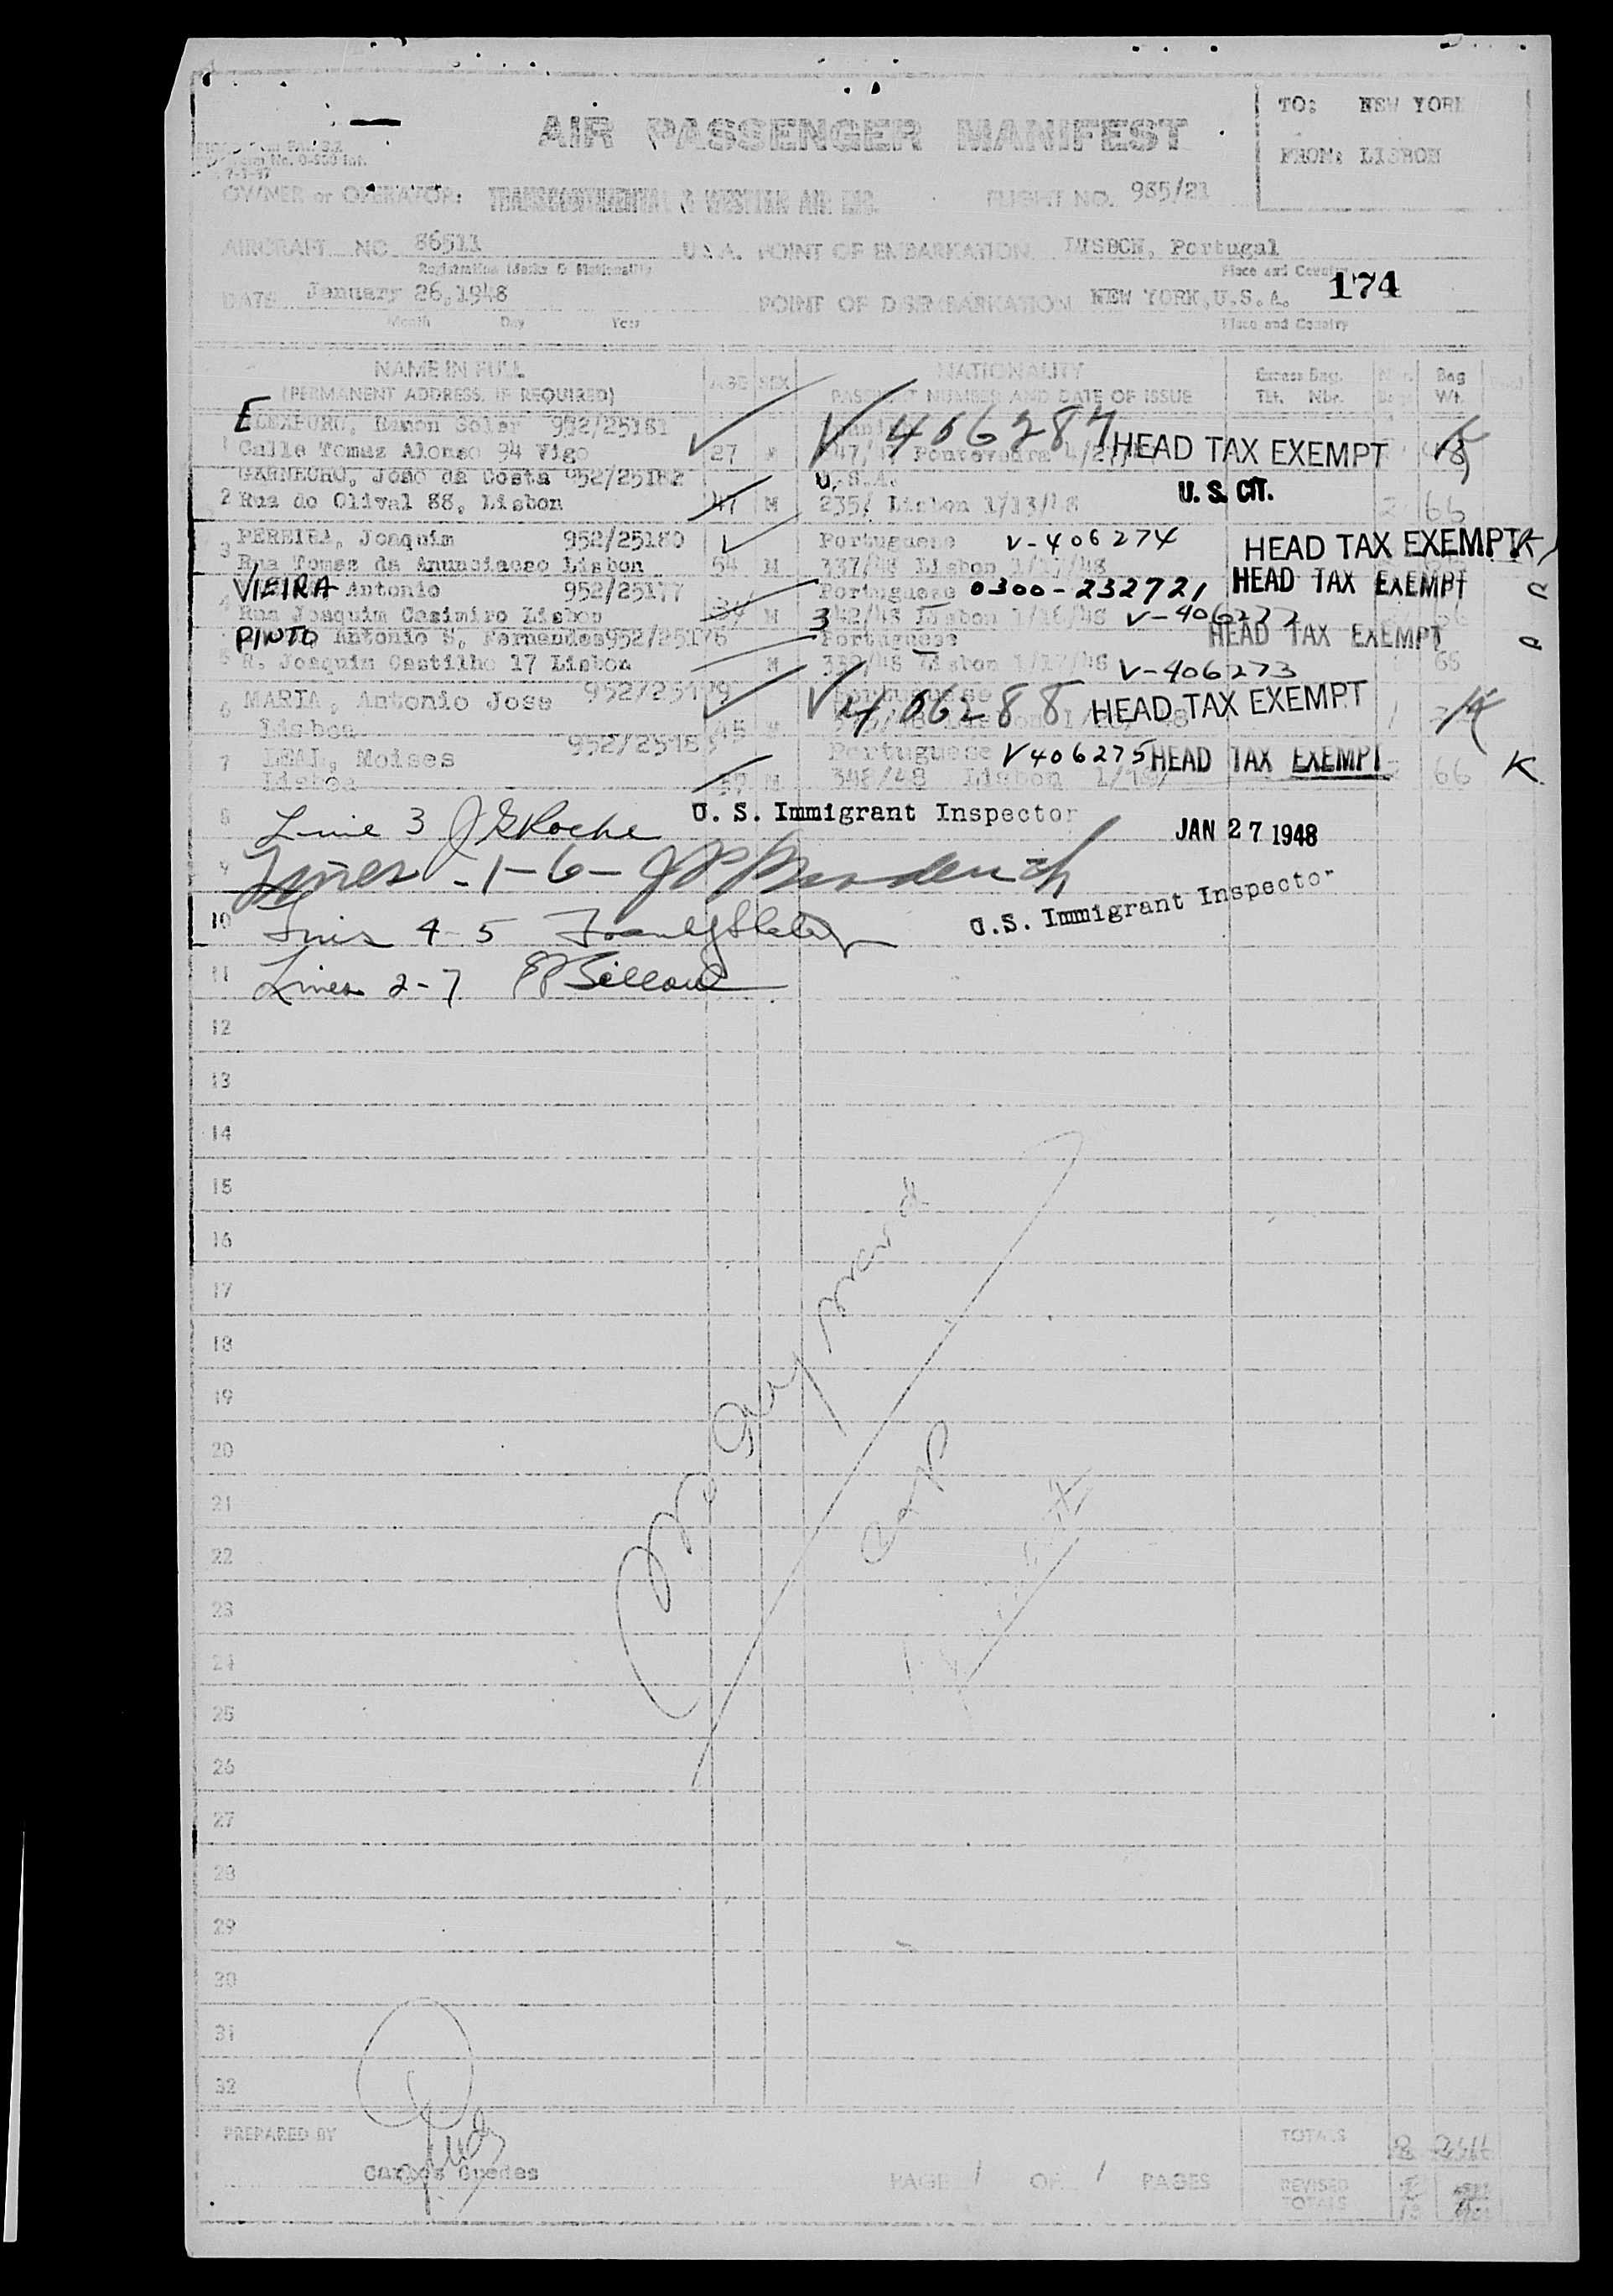 TO: NEW YORK
AIR PASSENGER MANIFEST
FROM: LISBON
OWNER or OPERATOR: TRANSCONTINENTAL & WESTERN AIR INC. FLIGHT NO. 935/21
AIRCRAFT NO. 86511 POINT OF EMBARKATION LISBON, Portugal
Registration Marks & Nationality Place and Country
DATE January 26, 1948 POINT OF DISEMBARKATION NEW YORK, U.S.A. 174
Month Day Year Place and Country
NAME IN FULL AGE SEX NATIONALITY Excess Bag. Bag
(PERMANENT ADDRESS, IF REQUIRED) PASSPORT NUMBER AND DATE OF ISSUE Tkt. Nbr. Wt.
Ramon Soler 952/25181 V 406287 HEAD TAX EXEMPT
1 Calle Tomas Alonso 94 Vigo 27 M
Joao da Costa 952/25182 U.S.A. U. S. CIT.
2 Rua do Olival 88, Lisbon 47 M 235/ Lisbon 1/13/48 2 66
PEREIRA, Joaquim 952/25180 Portuguese V-406274 HEAD TAX EXEMPT K
3 Rua Tomas da Anunciacao Lisbon 54 M 337/48 Lisbon 1/17/48
VIEIRA Antonio 952/25177 Portuguese 0300-232721 HEAD TAX EXEMPT
4 Rua Joaquim Casimiro Lisbon M 342/48 Lisbon 1/16/48 V-406272
PINTO, Antonio S. Fernandes 952/25176 Portuguese HEAD TAX EXEMPT
5 R. Joaquim Castilho 17 Lisbon M 339/48 Lisbon 1/17/48 V-406273 66
6 MARIA, Antonio Jose 952/25179 Portuguese V 406288 HEAD TAX EXEMPT
Lisbon 45 M
7 LEAL, Moises 952/25183 Portuguese V406275 HEAD TAX EXEMPT
Lisboa 37 M 348/48 Lisbon 66 K
8 Line 3 J G Roche U. S. Immigrant Inspector
JAN 27 1948
9 Lines -1-6-
10 Lines 4-5 U.S. Immigrant Inspector
11 Lines 2-7
12
13
14
15
16
17
18
19
20
21
22
23
24
25
26
27
28
29
30
31
32
PREPARED BY TOTALS
Carlos Guedes PAGE 1 OF 1 PAGES REVISED
TOTALS